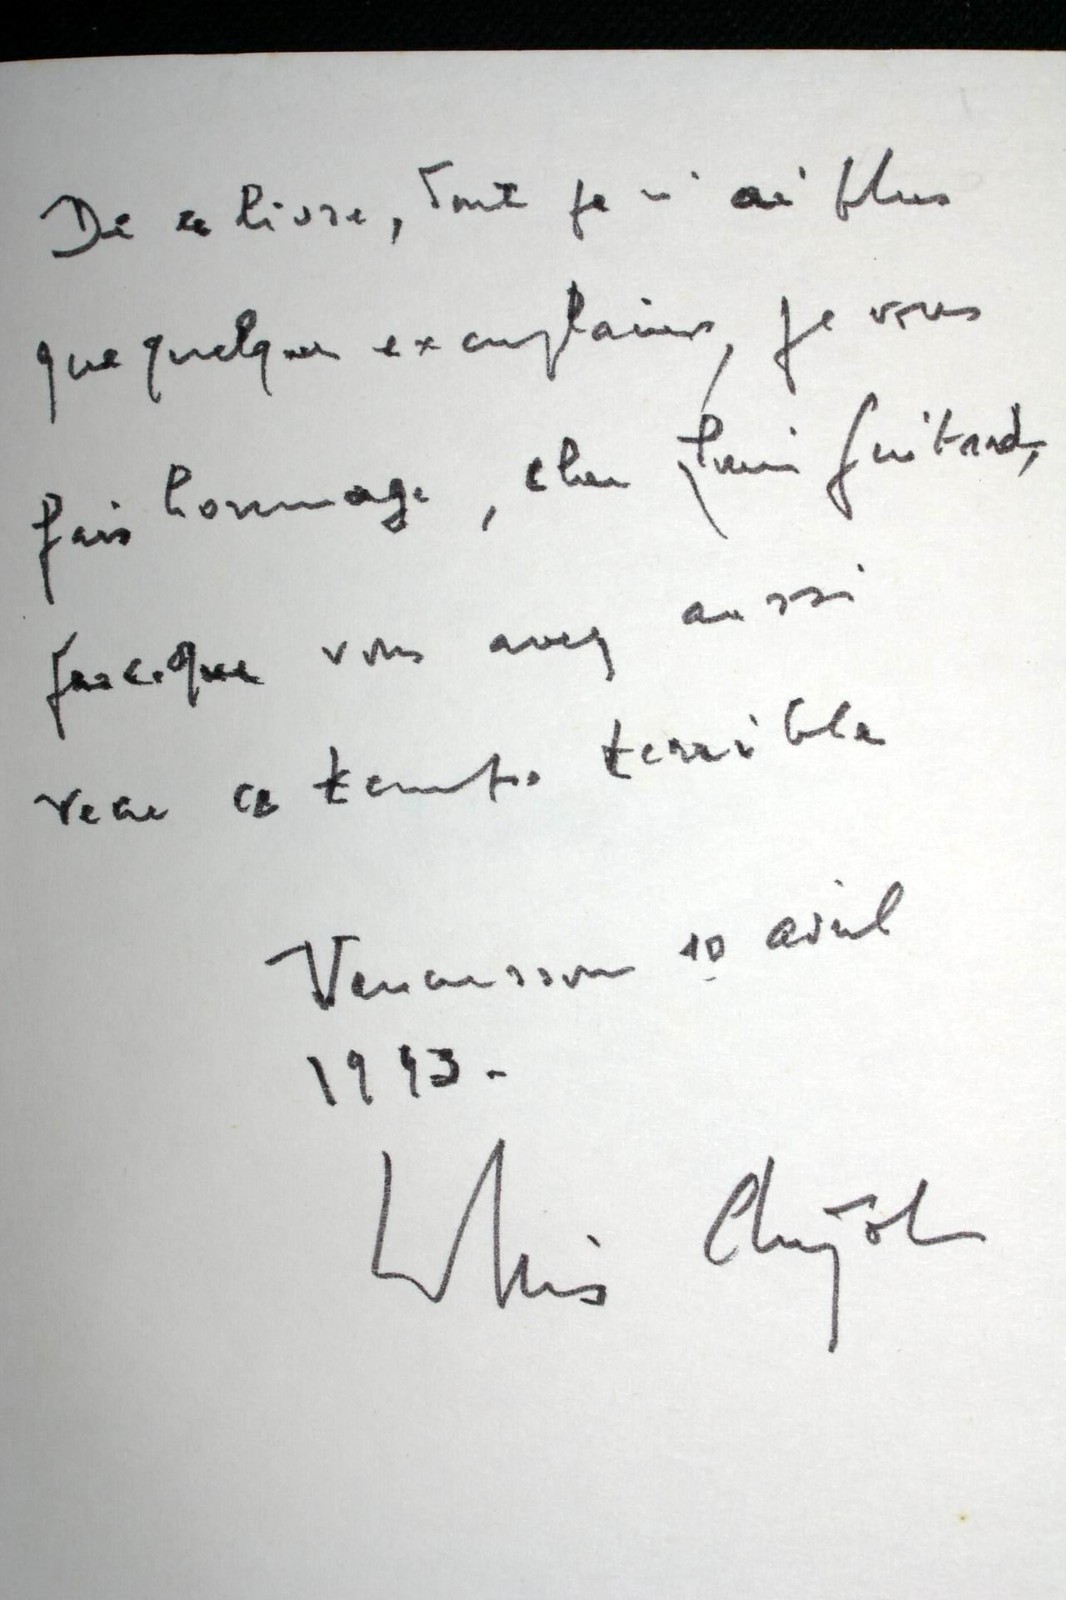 De ce livre, dont je n'ai plus
que quelques exemplaires, je vous
fais hommage, cher Louis Guitard,
parce que vous avez aussi
vécu ce temps terrible
10 avril